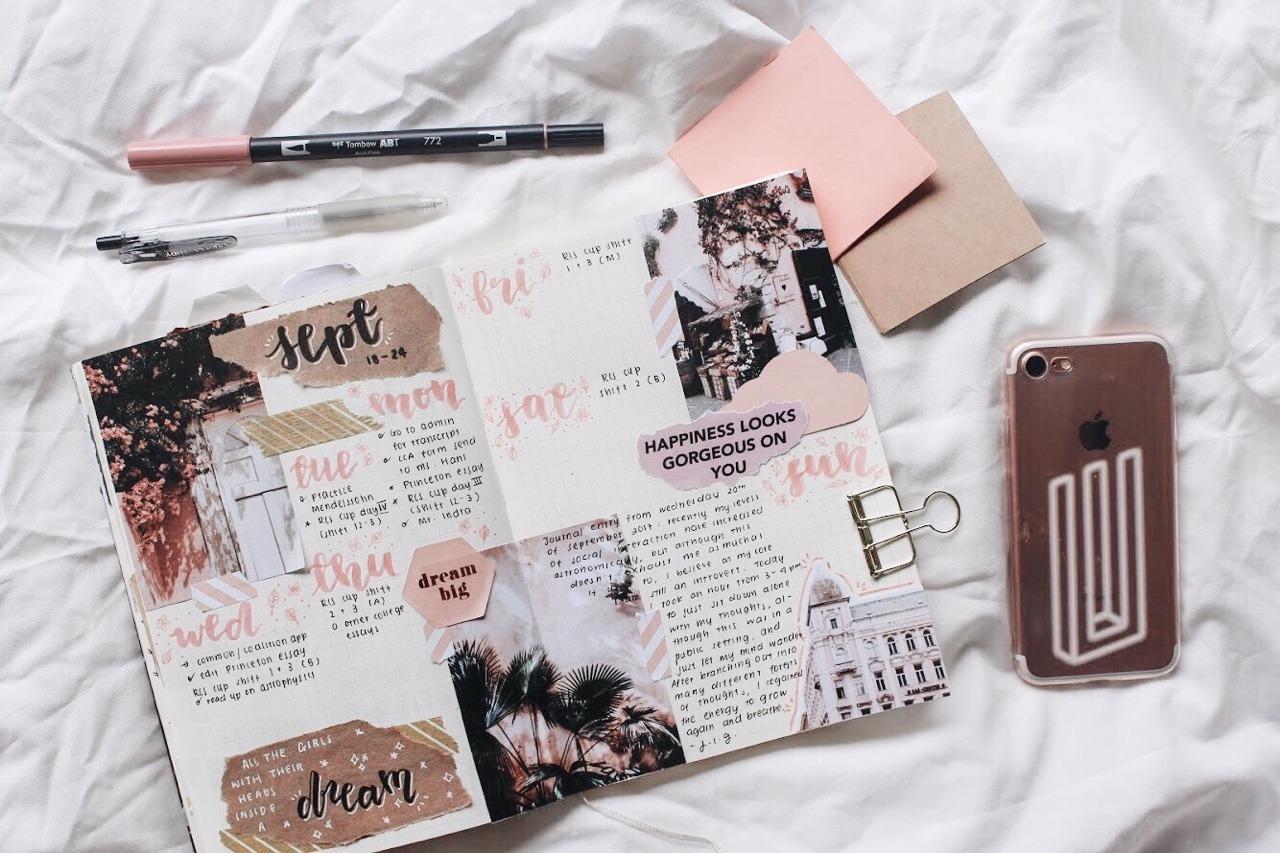 Tombow ABT
772
sept
18-24
mon
Go to admin
for transcript
CCA form send
to ms. Hani
Princeton essay
RLS cup day III
(shift 12-3)
Mr. Indra
tue
Practice
Mendelssohn
RLS cup day IV
(shift 12-3)
wed
common/coalition app
edit Princeton essay
RLS cup shift 1+3 (B)
read up on astrophysics
thu
RLS cup shift
2+3 (A)
other college
essays
dream
big
ALL THE GIRLS
WITH THEIR
HEADS
INSIDE
A
dream
fri
RLS cup shift
1+3 (M)
sat
RLS cup
shift 2 (B)
HAPPINESS LOOKS
GORGEOUS ON
YOU
sun
Journal entry from Wednesday 20th
of september 2017: recently my levels
of social interaction have increased
astronomically, but although this
doesn't exhaust me as much as
it to, I believe at my core
I am still an introvert. Today
I took an hour from 3-4 pm
to just sit down alone
with my thoughts, al-
though this was in a
public setting, and
just let my mind wander
After branching out into
many different forms
of thoughts, I regained
the energy to grow
again and breathe.
- j.l.g.